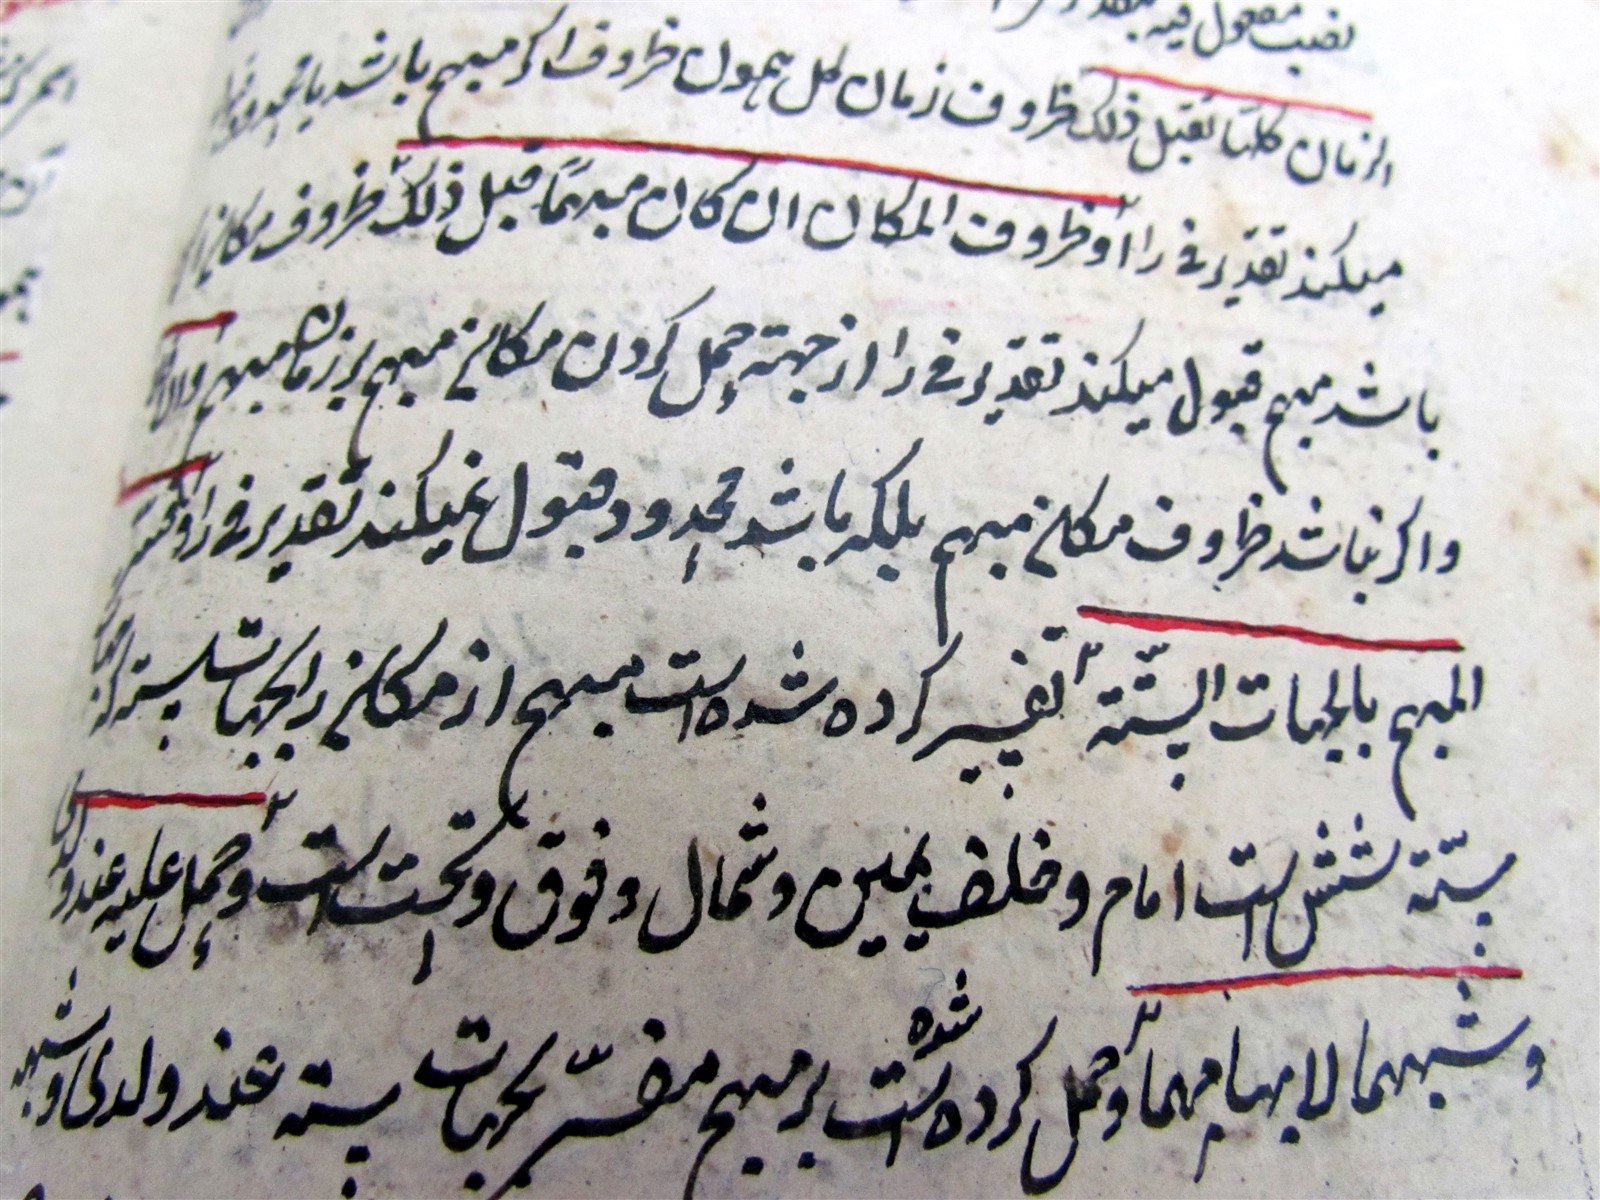 نصب مفعول فیه
الزمان کلها تقبل ذلک ظروف زمان کل همون ظروف اکر مبهم باشد یا محدود
میکند تقدیر فی را وظروف المکان ان کان مبهمًا قبل ذلک ظروف مکان
باشد مبهم قبول میکند تقدیر فی را از جهة حمل کردن مکانی مبهم بر زمان مبهم والا
واکر نباشد ظروف مکانی مبهم بلکه باشد محدود قبول نمیکند تقدیر فی را وفسر
المبهم بالجهات الستة تفسیر کرده شده است مبهم از مکانی را بجهات سته که
ستة شش است امام وخلف یمین وشمال وفوق وتحت است وحمل علیه عند ولدی
وشبههما لابهامهما وحمل کرده شده است بر مبهم مفسّر بجهات سته عند ولدی وشبه